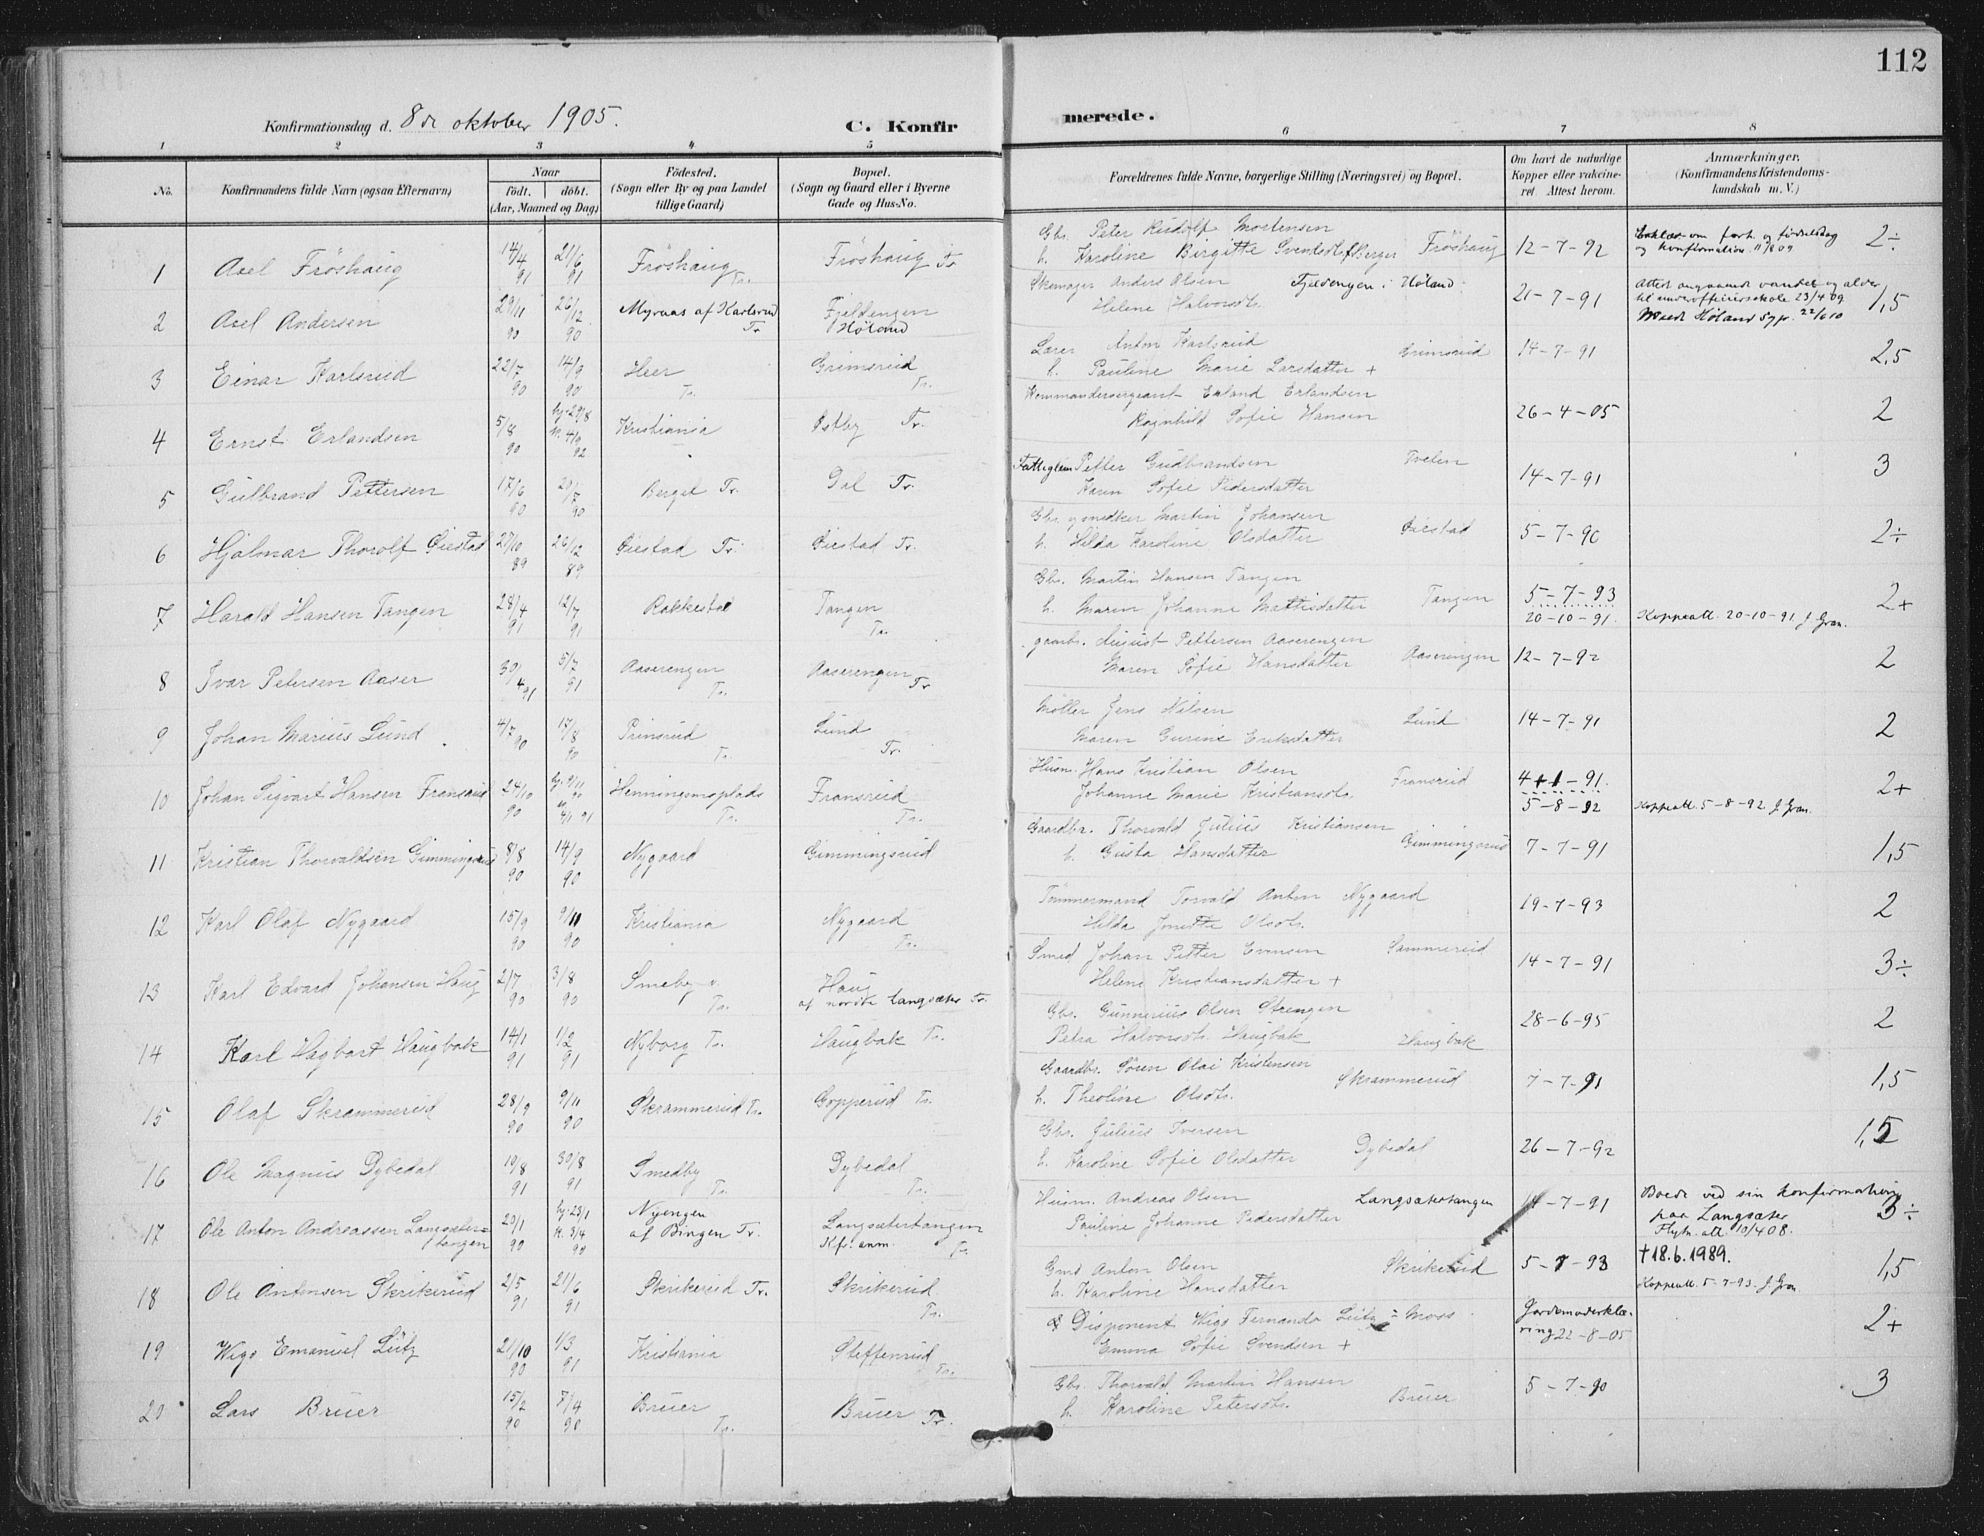 112
Konfirmationsdag d. 8de oktober 1905.
C. Konfirmerede.
1 2 3 4 5 6 7 8
No.
Konfirmandens fulde Navn (ogsaa Efternavn)
Naar
født. døbt.
(Aar, Maaned og Dag)
Fødested.
(Sogn eller By og paa Landet
tillige Gaard)
Bopæl.
(Sogn og Gaard eller i Byerne
Gade og Hus-No.
Forældrenes fulde Navne, borgerlige Stilling (Næringsvei) og Bopæl.
Om havt de naturlige
Kopper eller vakcine-
ret. Attest herom.
Anmærkninger.
(Konfirmandens Kristendoms-
kundskab m. V.)
1 Axel Fröshaug 14/4 91 21/6 91 Fröshaug Tr. Fröshaug Tr
Gbr. Peter Rudolf Mortensen
h. Karoline Birgitte Fröshaug 12-7-92 og konfirmation 2÷
2 Axel Andersen 29/11 90 26/12 90 Myraas af Karlsrud Tr Fjeldengen Høland
Skomager Anders Olsen Fjeldengen i Høland
Helene Halvorsdt. 21-7-91 Attest angaaende vandel og alder
til underofficersskole 23/4 09
1,5
3 Einar Karlsrud 22/7 90 14/9 90 Heer Tr. Grimsrud Tr.
Anton Karlsrud Grimsrud
h. Pauline Marie Larsdatter + 14-7-91 2,5
4 Ernst Erlandsen 5/8 90 hj. 29/8 4/9 92 Kristiania Østby Tr.
Kommandersergeant Erland Erlandsen
Ragnhild Sofie Hansen 26-4-05 2
5 Gulbrand Pettersen 17/6 90 20/7 90 Berget Tr. Dal Tr.
Fattiglem Petter Gudbrandsen Tveten
Karen Sofie Pedersdatter 14-7-91 3
6 Hjalmar Thorolf Øiestad 27/10 89 26/12 89 Øiestad Tr. Øiestad Tr.
Gbr. og snedker Martin Johansen Øiestad
h. Hilda Karoline Olsdatter 5-7-90 2÷
7 Harald Hansen Tangen 28/4 91 12/7 91 Rakkestad Tangen Tr.
Gbr. Martin Hansen Tangen
h. Maren Johanne Mattisdatter Tangen 5-7-93
20-10-91 Koppeatt. 20-10-91 J Gran. 2+
8 Ivar Petersen Aaser 30/4 91 5/7 91 Aaserengen Tr. Aaserengen Tr
gaardbr. August Pettersen Aaserengen
Maren Sofie Hansdatter Aaserengen 12-7-92 2
9 Johan Marius Lund 4/7 90 17/8 90 Prinsrud Tr. Lund Tr.
Møller Jens Nilsen Lund
Maren Gurine Eriksdatter 14-7-91 2
10 Johan Sigvart Hansen Fransrud 24/10 90 hj. 9/11 90 Henningsmoplads Tr. Fransrud Tr.
Husm. Hans Kristian Olsen Fransrud
Johanne Marie Kristiansdt. 5-8-92 Koppeatt. 5-8-92 J Gran. 2+
11 Kristian Thorvaldsen Gimmingsrud 8/8 90 14/9 90 Nygaard Gimmingsrud
Gaardbr. Thorvald Julius Kristiansen
h. Gusta Hansdatter Gimmingsrud 7-7-91 1,5
12 Karl Olaf Nygaard 15/9 90 9/11 90 Kristiania Nygaard Tr.
Tømmermand Torvald Anton Nygaard
Hilda Olsdt. 19-7-93 2
13 Karl Edvard Johansen Haug 2/7 90 3/8 90 Smeby Tr. Haug
af nordre Langsæter Tr.
Smed Johan Petter Evensen Sammerud
Helene Kristiansdatter + 14-7-91 3÷
14 Karl Hagbart Haugbak 14/1 91 1/2 91 Nyborg Tr. Haugbak Tr.
Gbr. Gunnerius Olsen Strengen
Petra Halvorsdt. Haugbak Haugbak 28-6-95 2
15 Olaf Skrammerud 28/9 90 9/11 90 Skrammerud Tr. Gopperud Tr.
Gaardbr. Søren Olai Kristensen Skrammerud
h. Theoline Olsdt. 7-7-91 1,5
16 Ole Magnus Dybedal 19/8 91 30/8 91 Smedby Tr. Dybedal Tr.
Gbr. Julius Iversen
h. Karoline Sofie Olsdatter Dybedal 26-7-92 1,5
17 Ole Anton Andreassen Langsæter=
tangen 20/1 90 hj. 23/1 k. 3/4 90 Nyengen
af Bingen Tr. Langsætertangen
Kfr. anm. Tr.
Husm. Andreas Olsen Langsætertangen
Pauline Johanne Pedersdatter 14-7-91 Boede ved sin konfirmation
paa Langsæter
Flytn. att. 10/4 08. 3÷
18 Ole Antonsen Skrikerud 2/5 91 21/6 91 Skrikerud Tr. Skrikerud Tr.
Anton Olsen Skrikerud
h. Karoline Hansdatter 5-7-93 †18.6.1989.
Koppeatt. 5-7-93. J Gran 1,5
19 Wigo Emanuel Lütz 21/10 90 1/3 91 Kristiania Steffensrud Tr.
Disponent Wigo Fernando Lütz Moss
Emma Sofie Svendsen + Jordemoderklæ-
ring 22-8-05 2+
20 Lars Bruer 15/2 90 7/4 90 Bruer Tr. Bruer Tr.
Gbr. Thorvald Martin Hansen
h. Karoline Petersdt. Bruer 5-7-90 3